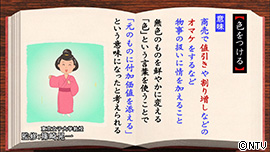 【色をつける】
意味
商売で値引きや割り増しなどの
オマケをするなど
物事の扱いに情を加えること
無色のものを鮮やかに変える
「色」という言葉を使うことで、
「元のものに付加価値を添える」
という意味になったと考えられる
©NTV